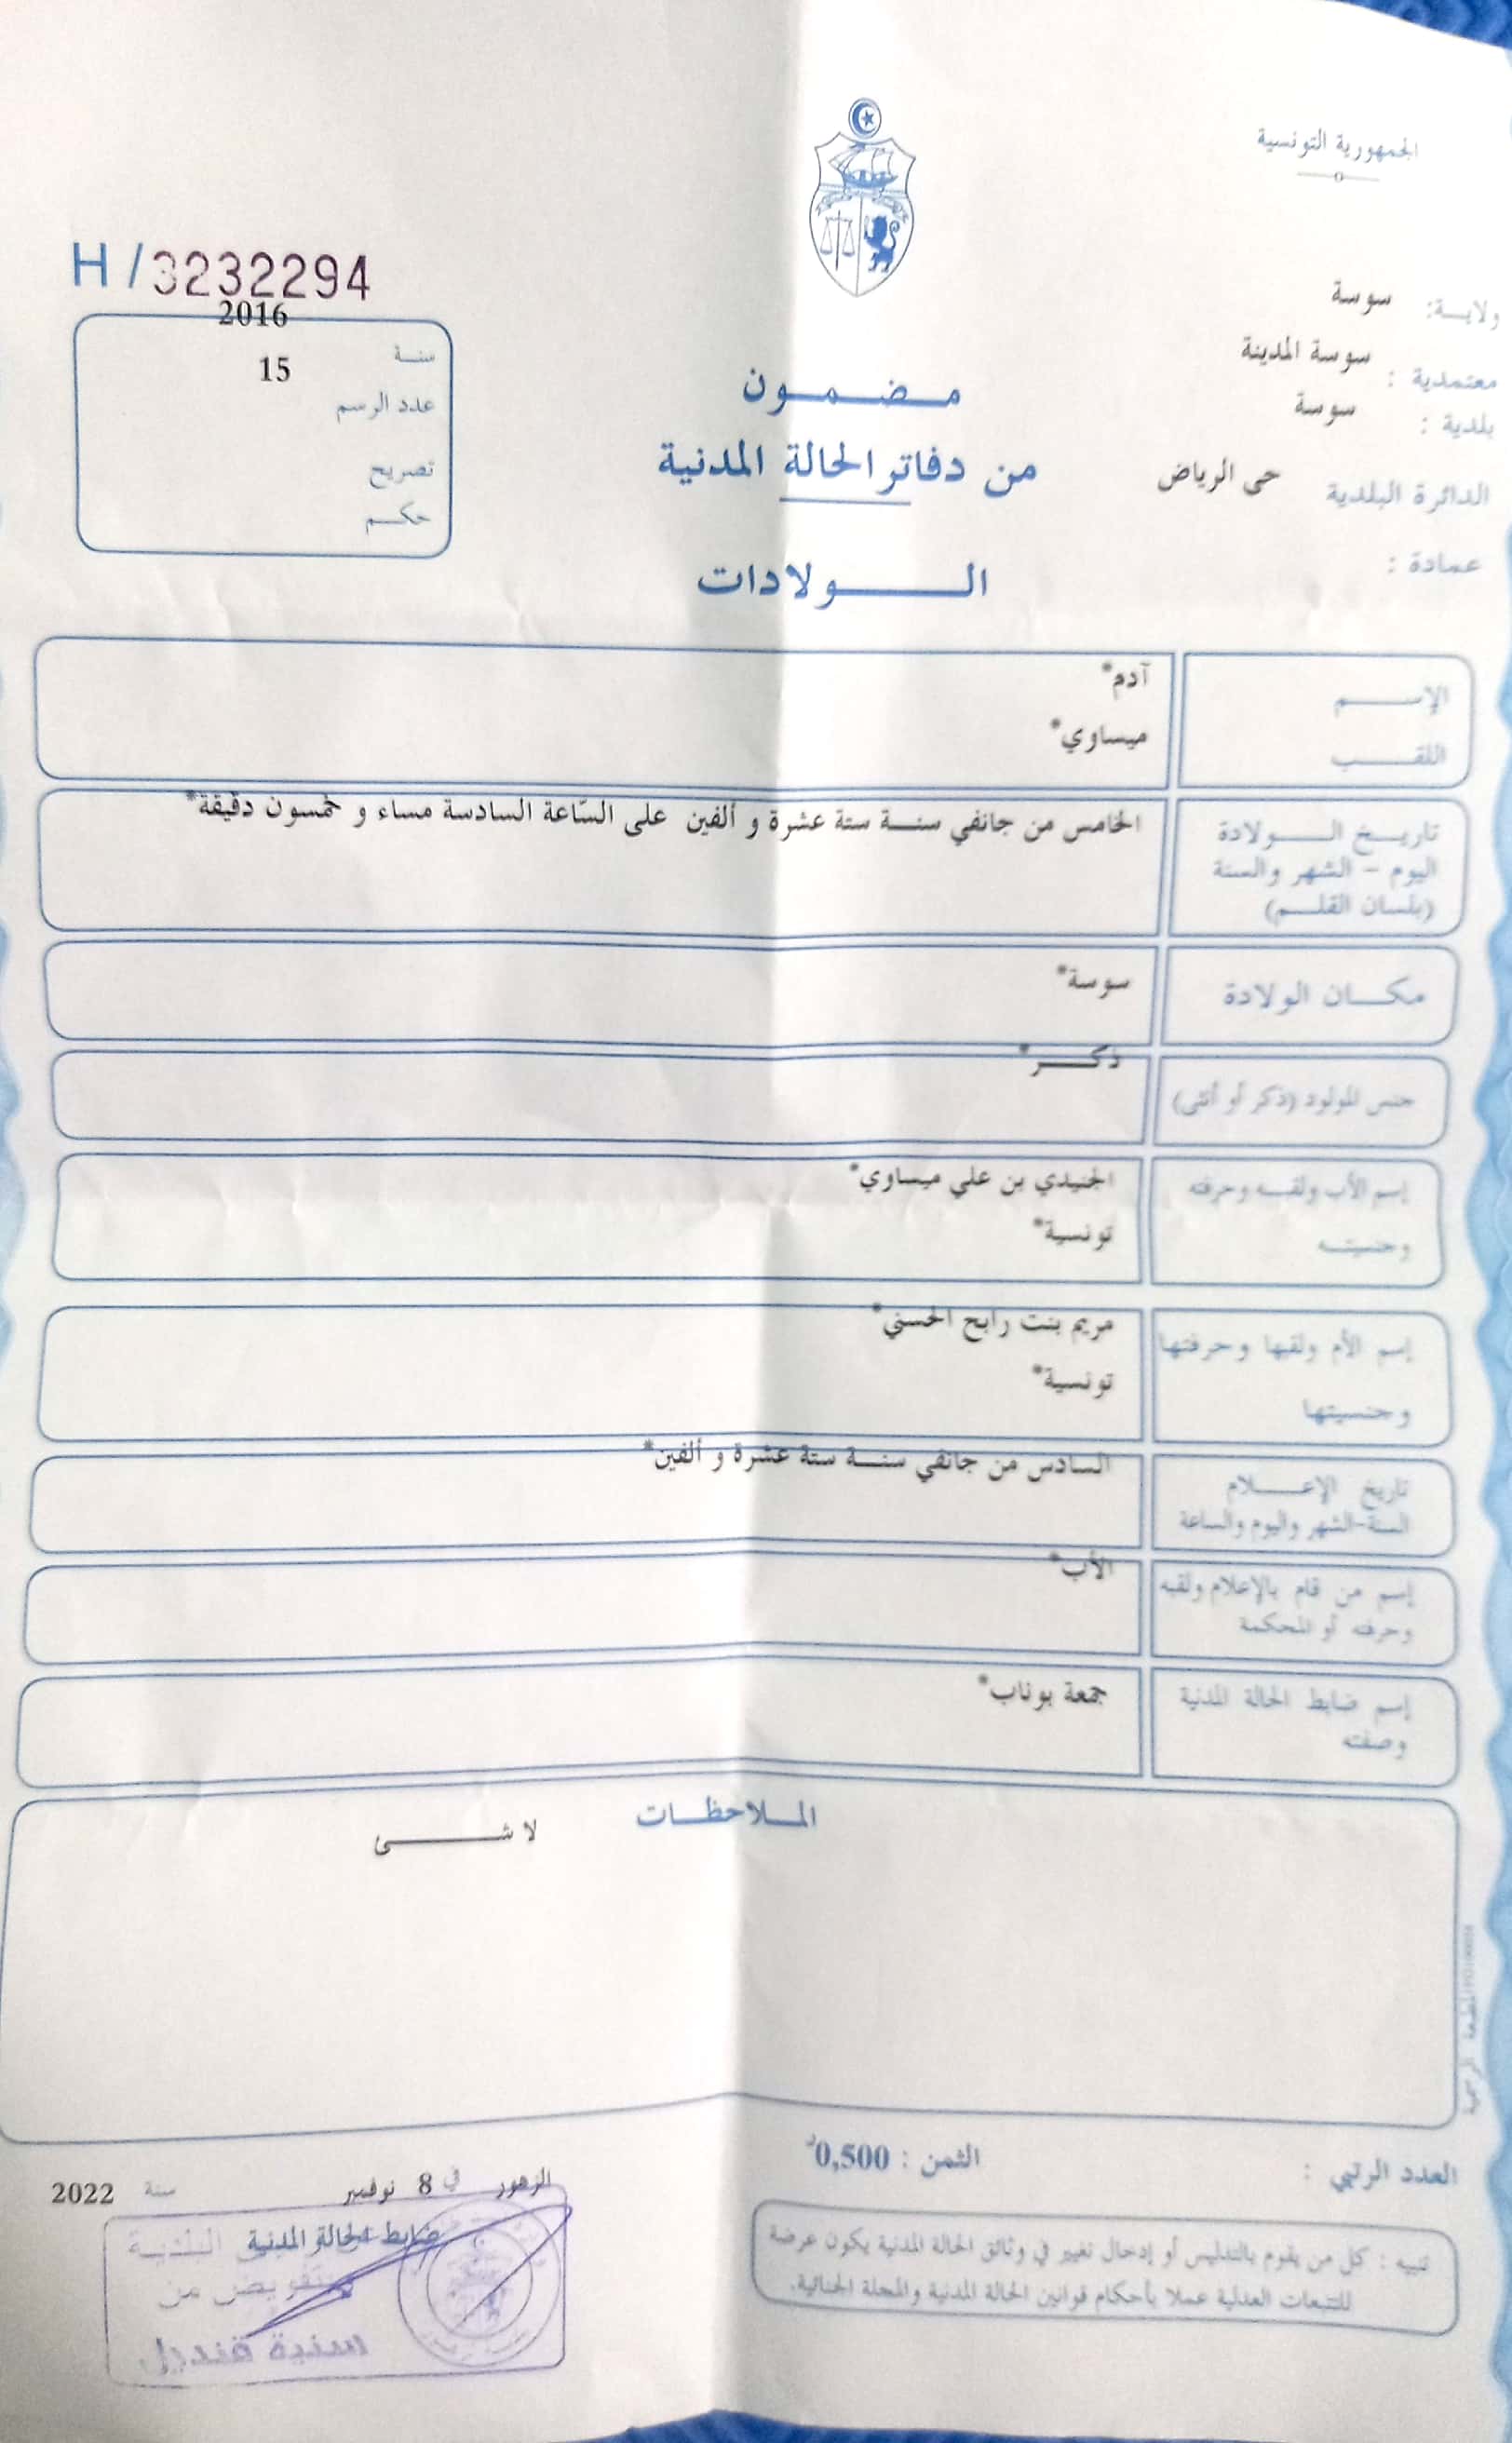 الجمهورية التونسية
ولايــة: سوسة
معتمدية : سوسة المدينة
بلدية : سوسة
الدائرة البلدية حى الرياض
عمادة :
H/3232294
2016
سنة
15
عدد الرسم
تصريح
حكم
مضمون
من دفاتر الحالة المدنية
الولادات
الإسم آدم*
اللقب ميساوي*
تاريخ الولادة الخامس من جانفي سنة ستة عشرة و ألفين على السّاعة السادسة مساء و خمسون دقيقة*
اليوم - الشهر والسنة
(بلسان القلم)
مكان الولادة سوسة*
جنس المولود (ذكر أو أنثى) ذكر*
إسم الأب ولقبه وحرفته الجنيدي بن علي ميساوي*
وجنسيته تونسية*
إسم الأم ولقبها وحرفتها مريم بنت رابح الحسني*
وجنسيتها تونسية*
تاريخ الإعلام السادس من جانفي سنة ستة عشرة و ألفين*
السنة-الشهر واليوم والساعة
إسم من قام بالإعلام ولقبه الأب*
وحرفته أو المحكمة
إسم ضابط الحالة المدنية جمعة بوناب*
وصفته
الملاحظات
لا شى
المطبعة الرسمية
العدد الرتبي :
الثمن : 0,500د
تنبيه : كل من يقوم بالتدليس أو إدخال تغيير في وثائق الحالة المدنية يكون عرضة
للتتبعات العدلية عملا بأحكام قوانين الحالة المدنية والمجلة الجنائية.
الزهور في 8 نوفمبر سنة 2022
ضابط الحالة المدنية
بتفويض من
سنية قنديل